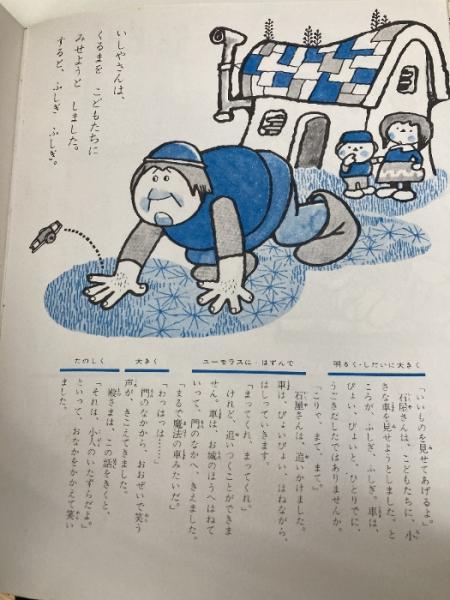 いしやさんは、
くるまを こどもたちに
みせようと しました。
すると、ふしぎ ふしぎ。
明るく・しだいに大きく
ユーモラスに・はずんで
大きく
たのしく
「いいものを見せてあげるよ。」
石屋さんは、こどもたちに、小
さな車を見せようとしました。と
ころが、ふしぎ、ふしぎ。車は、
ぴょい、ぴょいと、ひとりでに、
うごきだしたではありませんか。
「こりゃ、まて、まて。」
石屋さんは、追いかけました。
車は、ぴょいぴょい、はねながら、
はしっていきます。
「まってくれ、まってくれ。」
けれど、追いつくことができま
せん。車は、お城のほうへはねて
いって、門のなかへ、きえました。
「まるで魔法の車みたいだ。」
「わっはっは……」
門のなかから、おおぜいで笑う
声が、きこえてきました。
殿さまは、この話をきくと、
「それは、小人のいたずらだよ。」
といって、おなかをかかえて笑い
ました。